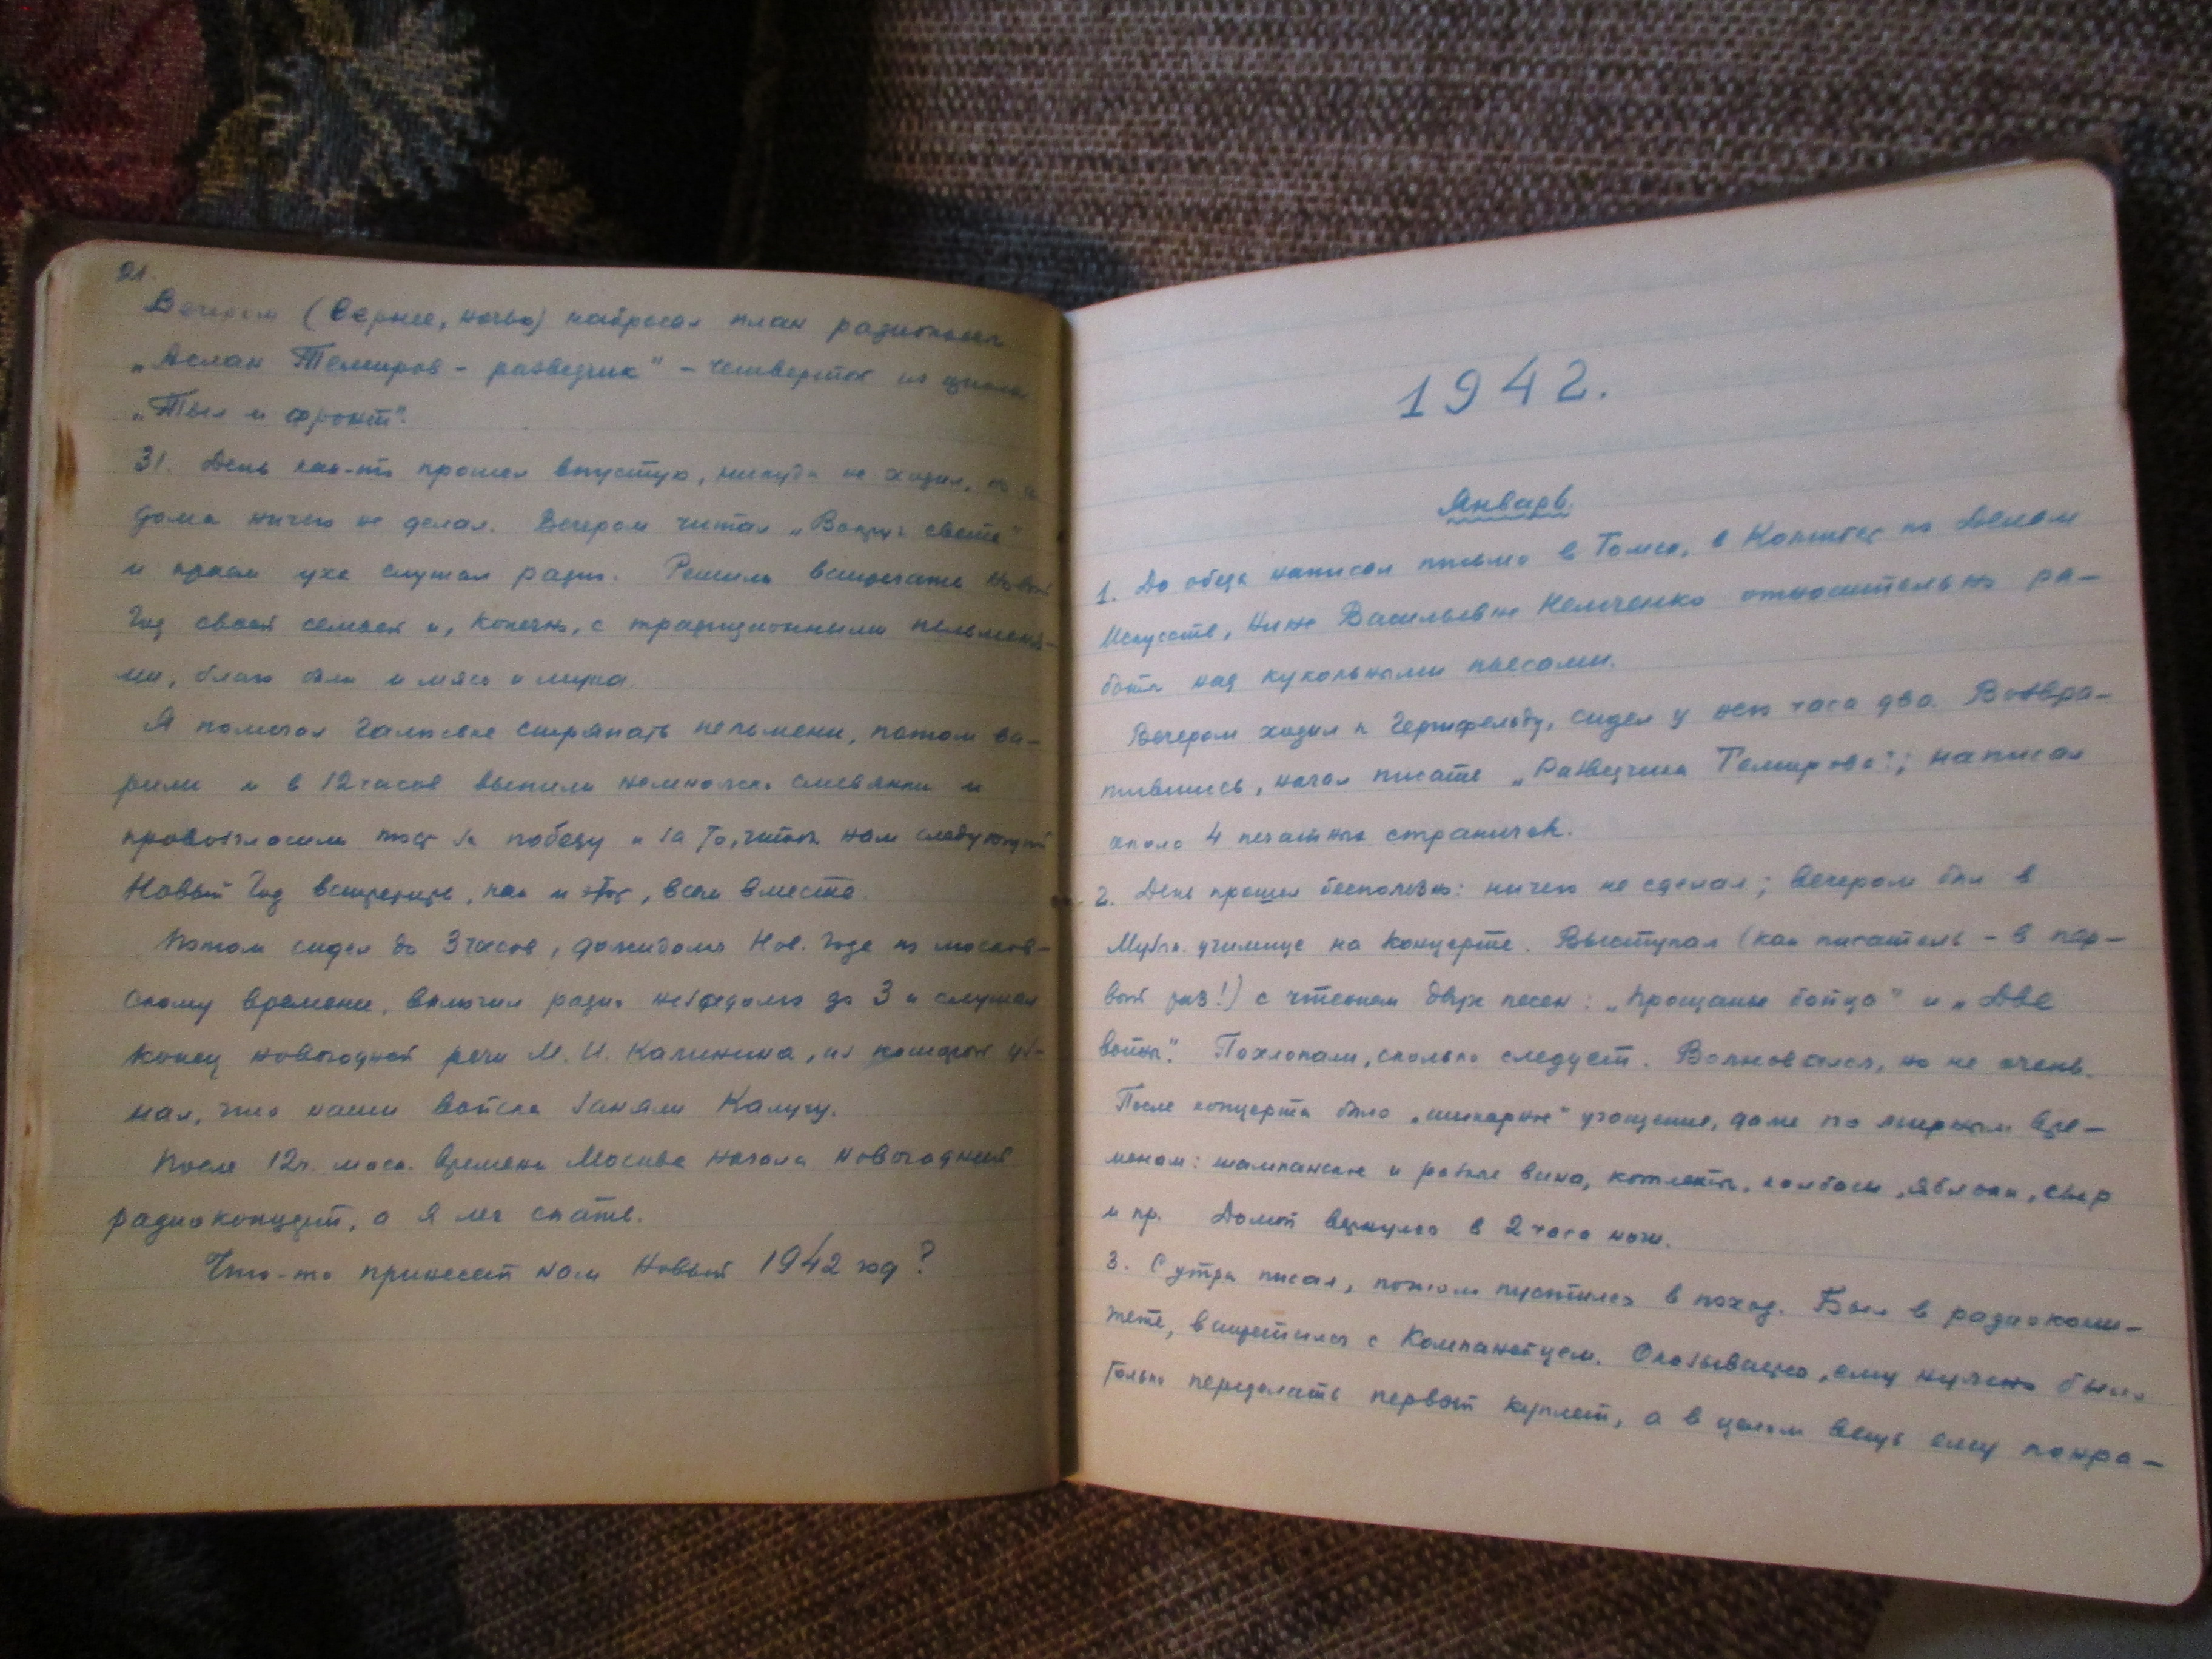 21.
Вечером (вернее, ночью) набросал план радиопьесы
„Аслан Темиров - разведчик" - четвертой из цикла
„Тыл и фронт".
31. День как-то прошел впустую, никуда не ходил, но и
дома ничего не делал. Вечером читал „Вокруг света"
и краем уха слушал радио. Решили встречать Новый
Год своей семьей и, конечно, с традиционными пельменя-
ми, благо были и мясо и мука.
Я помогал Галюське стряпать пельмени, потом ва-
рили и в 12 часов выпили немножко сливянки и
провозгласили тост за победу и за то, чтобы нам следующий
Новый Год встретить, как и этот, всем вместе.
Потом сидел до 3 часов, дожидался Нов. Года по москов-
скому времени, включил радио незадолго до 3 и слушал
конец новогодней речи М. И. Калинина, из которой уз-
нал, что наши войска заняли Калугу.
После 12 ч. моск. времени Москва начала новогодний
радиоконцерт, а я лег спать.
Что-то принесет нам Новый 1942 год?
1942.
Январь.
1. До обеда написал письмо в Томск, в Комитет по Делам
Искусств, Нине Васильевне Немченко относительно ра-
боты над кукольными пьесами.
Вечером ходил к Герцфельду, сидел у него часа два. Возвра-
тившись, начал писать „Разведчика Темирова"; написал
около 4 печатных страничек.
2. День прошел бесполезно: ничего не сделал; вечером был в
Музык. училище на концерте. Выступал (как писатель - в пер-
вый раз!) с чтением двух песен: „Прощанье бойца" и „Две
войны". Похлопали, сколько следует. Волновался, но не очень.
После концерта было „шикарное" угощение, даже по мирным вре-
менам: шампанское и разные вина, котлеты, колбасы, яблоки, сыр
и пр. Домой вернулся в 2 часа ночи.
3. С утра писал, потом пустился в поход. Был в радиокоми-
тете, встретился с Компанейцем. Оказывается, ему нужно было
только переделать первый куплет, а в целом вещь ему понра-